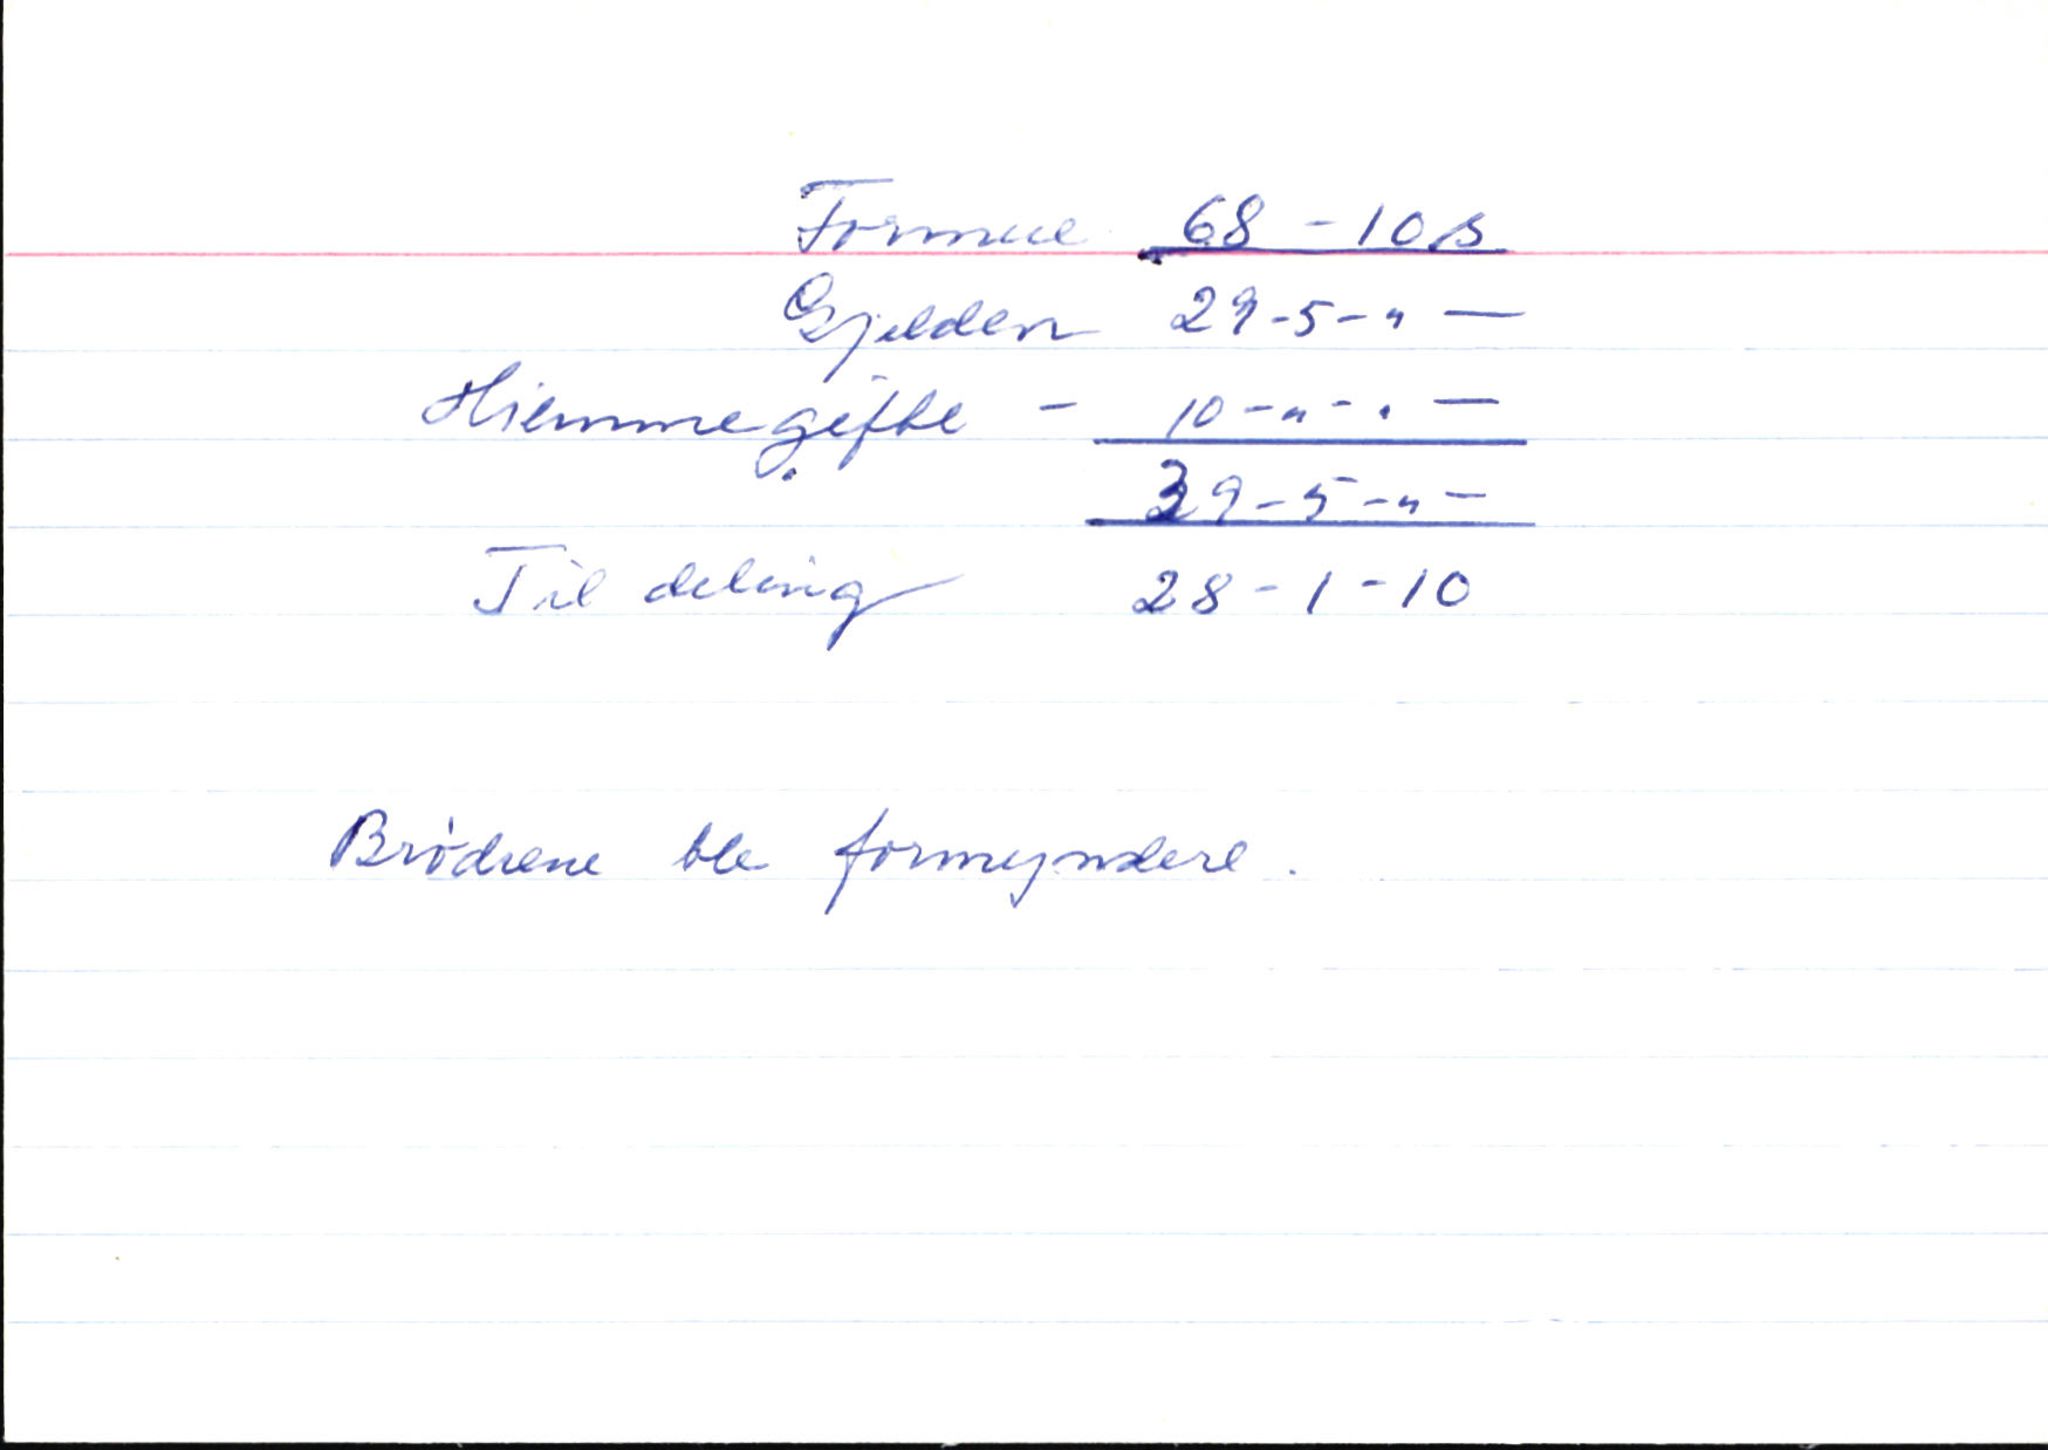 Formue 68 - 10 s
Gjelden 29 - 5 - " —
Hiemmegifte - 10 - " - " —
39 - 5 - " —
Til deling 28 - 1 - 10
Brødrene ble formyndere.